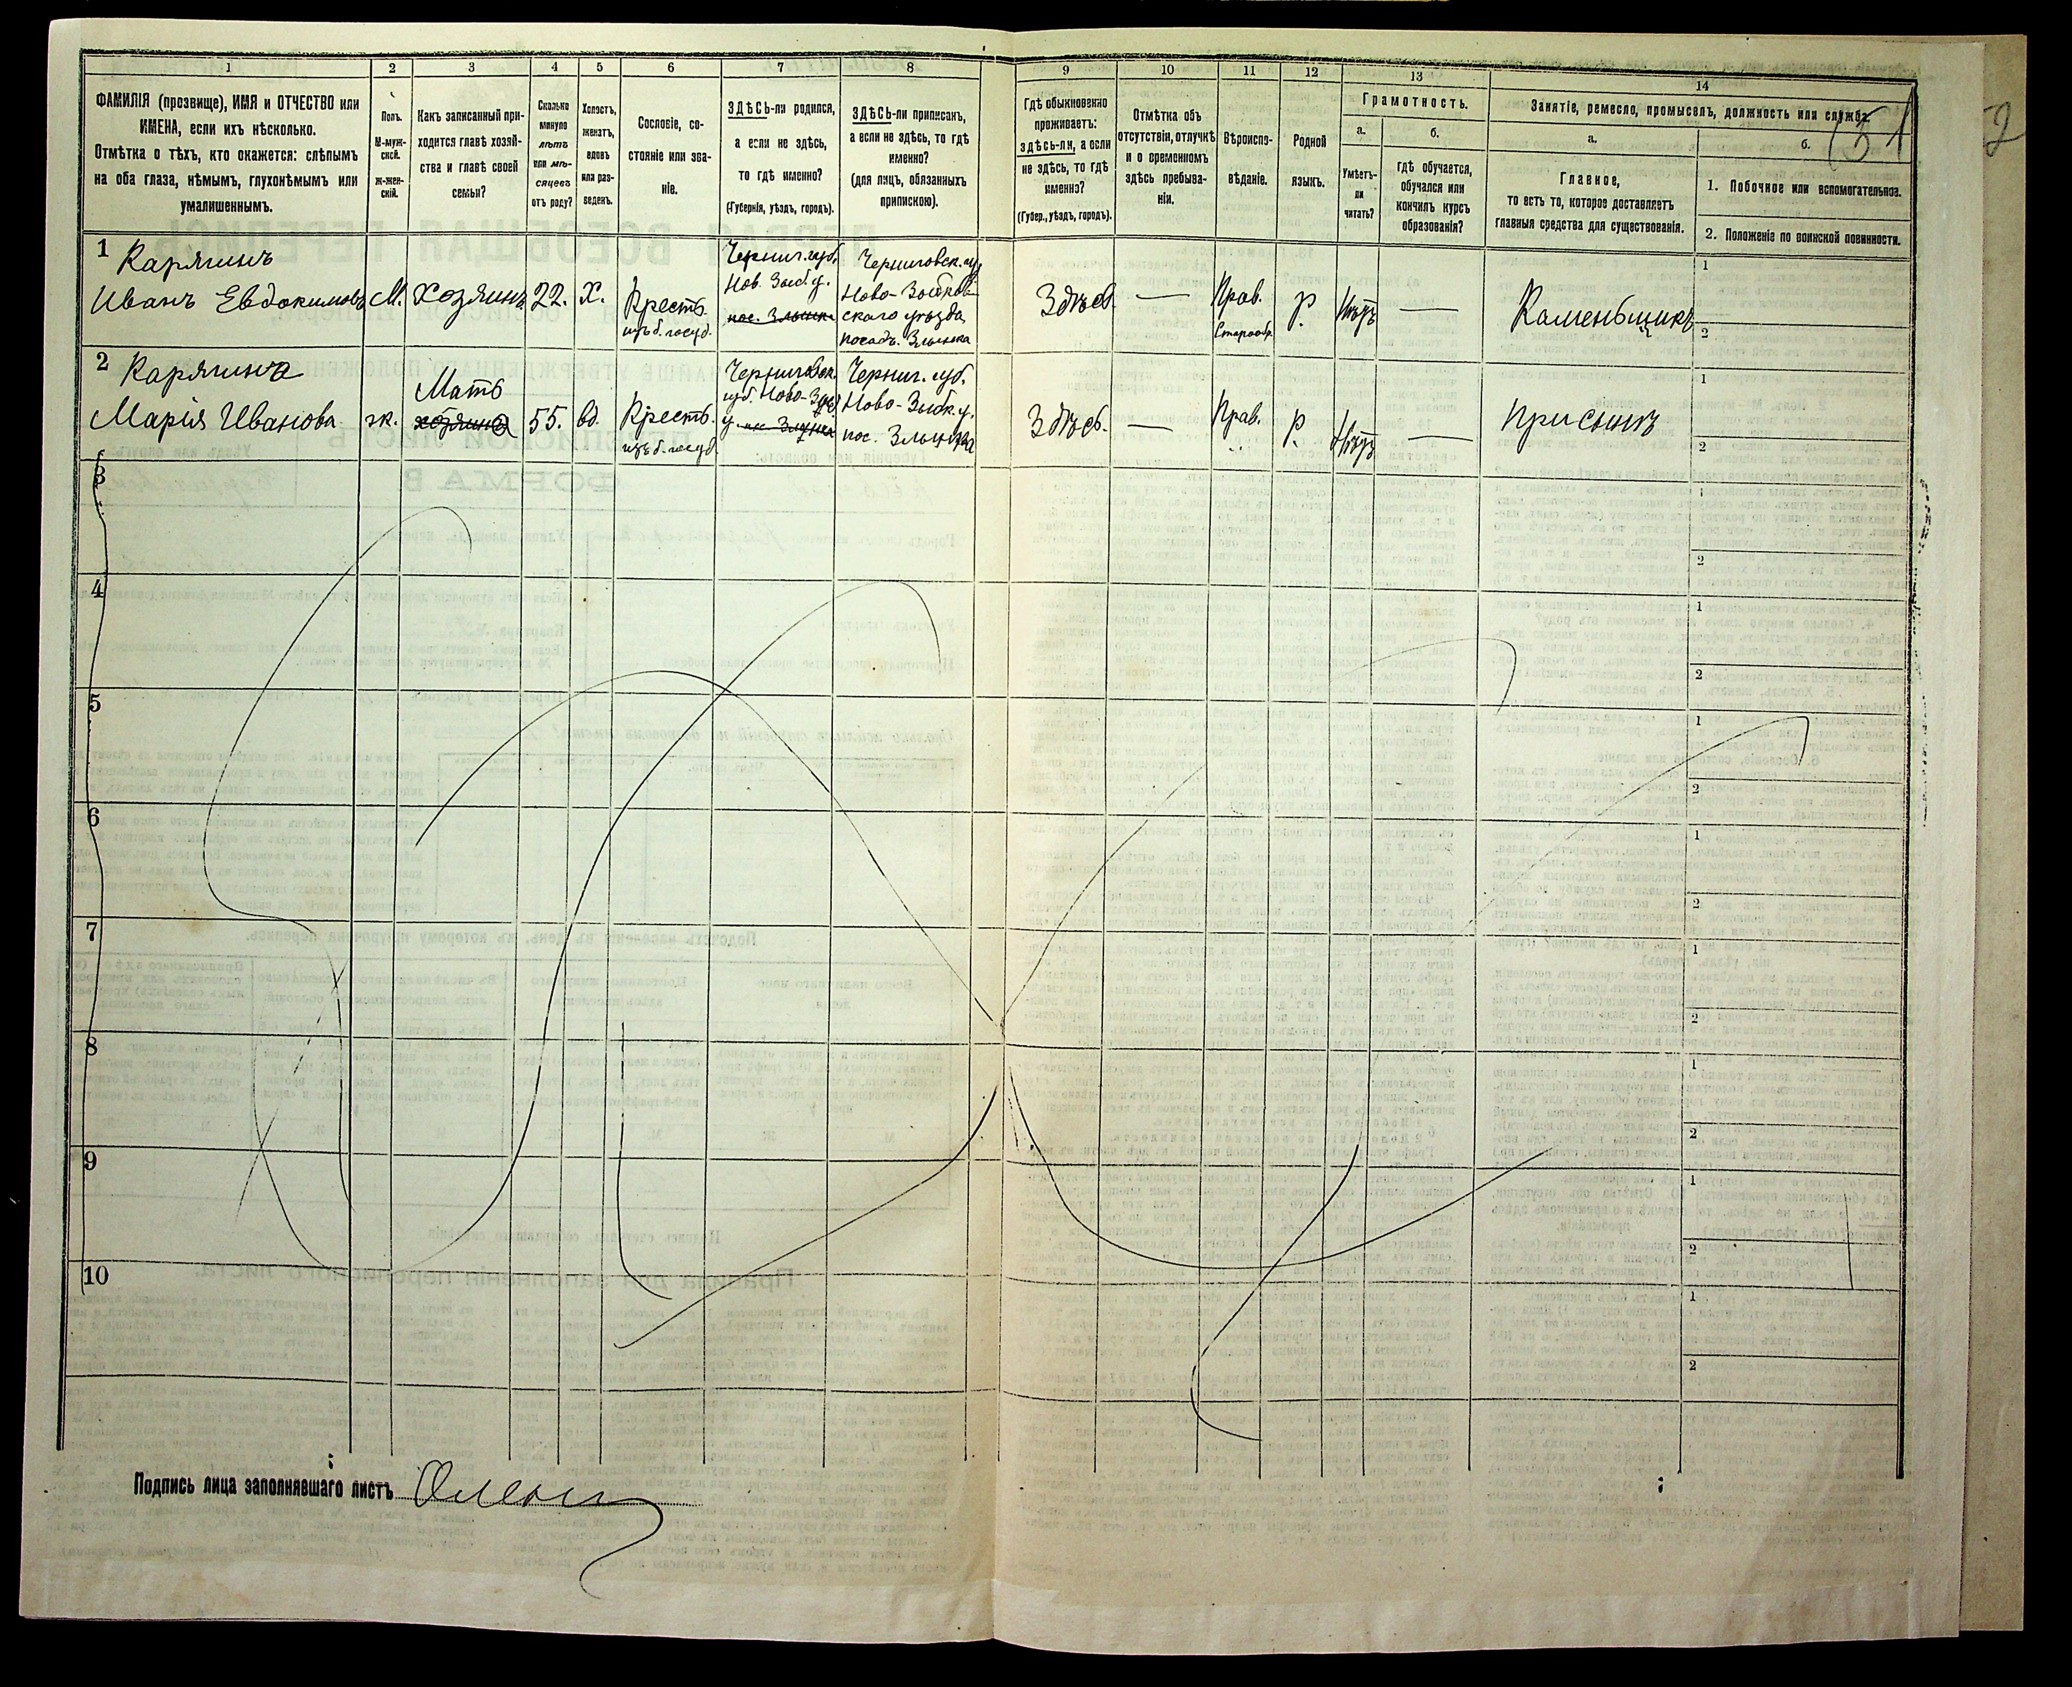 1
2
3
4
5
6
7
8
ФАМИЛІЯ (прозвище), ИМЯ и ОТЧЕСТВО или
ИМЕНА, если ихъ нѣсколько.
Отмѣтка о тѣхъ, кто окажется: слѣпымъ
на оба глаза, нѣмымъ, глухонѣмымъ или
умалишеннымъ.
Полъ.
М-муж-
ской.
Ж-жен-
скій.
Какъ записанный при-
ходится главѣ хозяй-
ства и главѣ своей
семьи?
Сколько
минуло
лѣтъ
или мѣ-
сяцевъ
отъ роду?
Холостъ,
женатъ,
вдовъ
или раз-
веденъ.
Сословіе, со-
стояніе или зва-
ніе.
ЗДѢСЬ-ли родился,
а если не здѣсь,
то гдѣ именно?
(Губернія, уѣздъ, городъ).
ЗДѢСЬ-ли приписанъ,
а если не здѣсь, то гдѣ
именно?
(для лицъ, обязанныхъ
припискою).
9
10
11
12
13
14
Гдѣ обыкновенно
проживаетъ:
здѣсь-ли, а если
не здѣсь, то гдѣ
именно?
(Губер., уѣздъ, городъ).
Отмѣтка объ
отсутствіи, отлучкѣ
и о временномъ
здѣсь пребыва-
ніи.
Вѣроиспо-
вѣданіе.
Родной
языкъ.
Грамотность.
а.
б.
Умѣетъ-
ли
читать?
Гдѣ обучается,
обучался или
кончилъ курсъ
образованія?
Занятіе, ремесло, промыселъ, должность или служба.
а.
б.
51
2
Главное,
то есть то, которое доставляетъ
главныя средства для существованія.
1. Побочное или вспомогательное.
2. Положеніе по воинской повинности.
1
Карягинъ
Иванъ Евдокимовъ
М.
хозяинъ
22.
х.
Крестъ.
изъ б. госуд.
Черниг. губ,
Нов. Зыб. у.
пос. Злынк
Черниговск. гу
Ново-Зыбков-
скаго уѣзда
посадъ. Злынка
Здѣсь
Прав.
Старообр.
р.
Нѣтъ
Каменьщикъ
1
2
2
Карягина
Марія Иванова
ж.
Мать
хозяина
55.
вд.
Крестъ.
изъ б. госуд.
Черниговск.
губ. Ново-Зыб
у. пос. Злынка
Черниг. губ.
Ново-Зыбк. у.
пос. Злынка
Здѣсь.
Прав.
р.
Нѣтъ
При сынѣ
1
2
3
1
2
4
1
2
5
1
2
6
1
2
7
1
2
8
1
2
9
1
2
10
1
2
Подпись лица заполнявшаго листъ